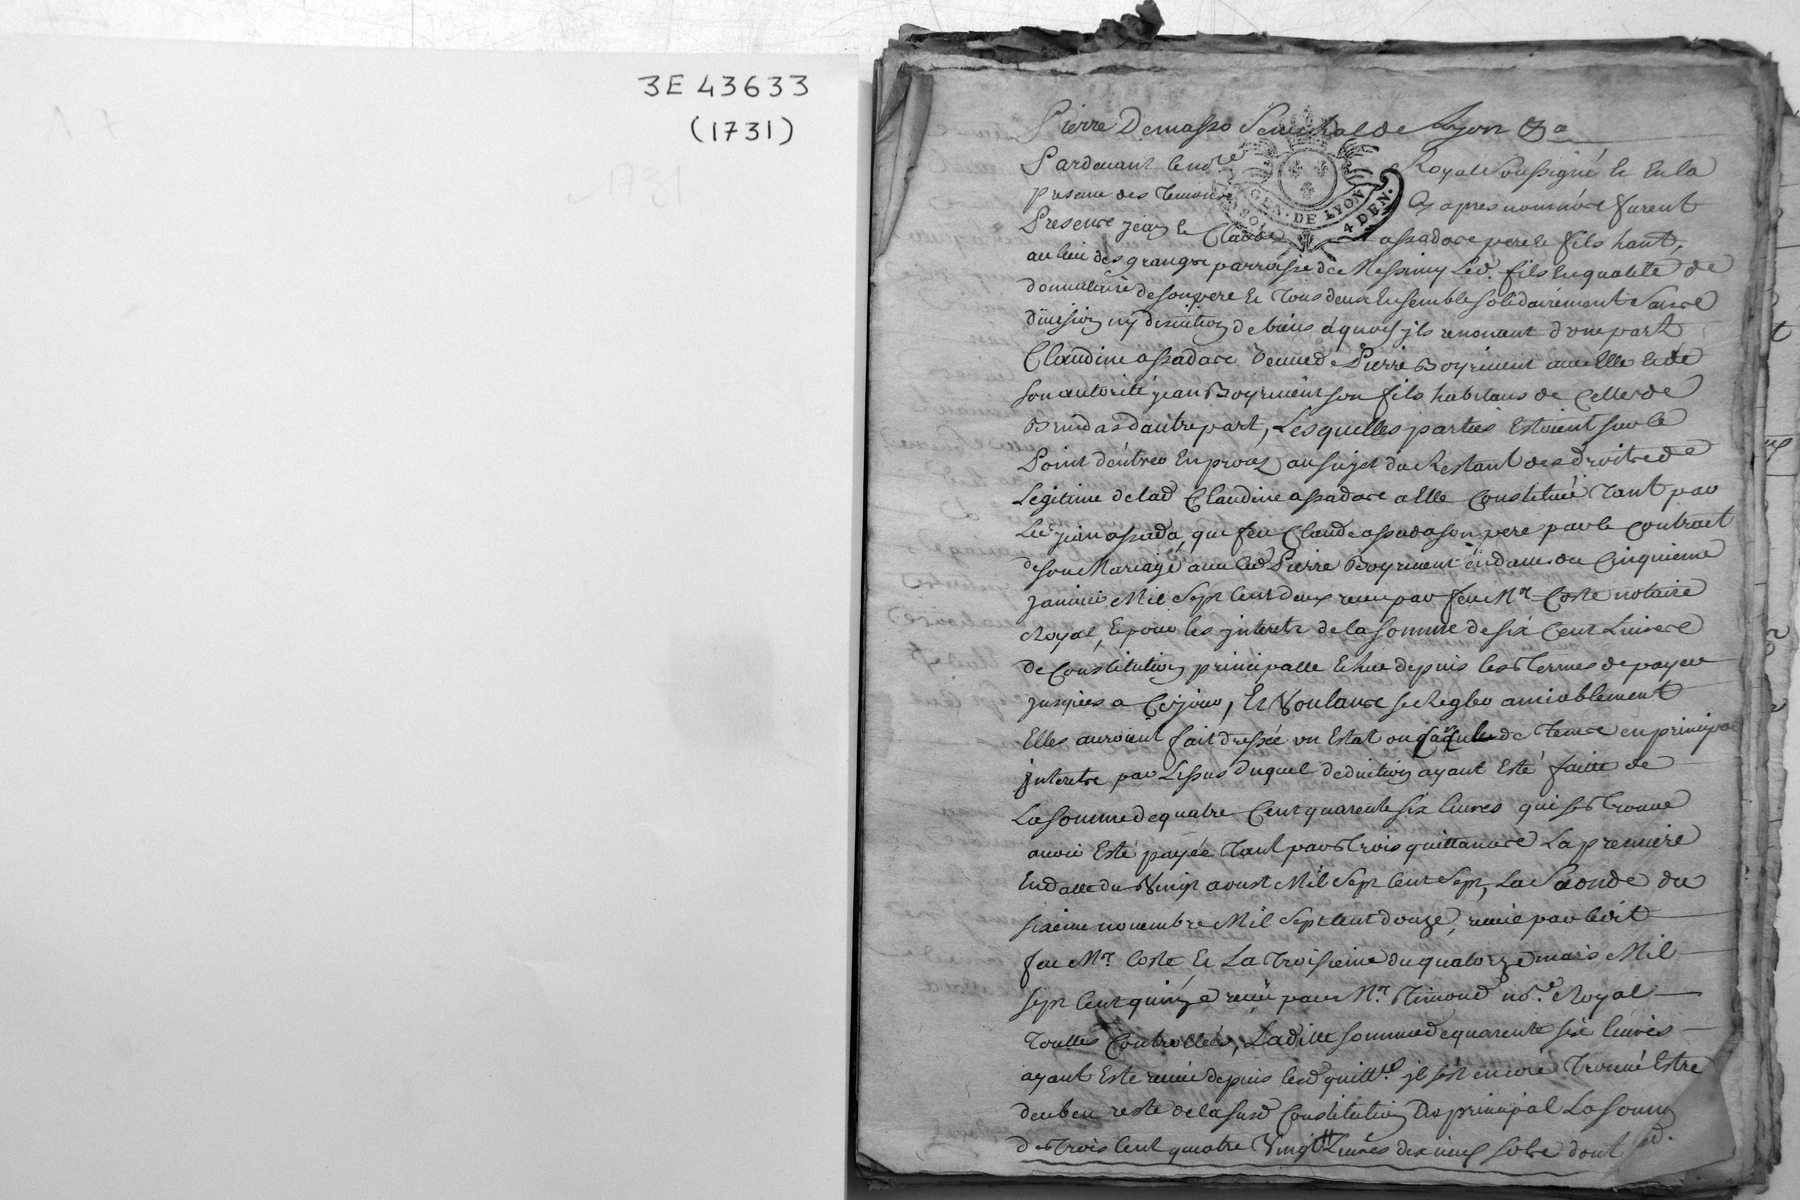 3E 43633
(1731)
Pierre Demasso Senechal de Lyon &a
Pardevant le no.re Royal soussigné et en la
presence des temoins cy apres nommés furent
GEN. DE LYON
4 DEN.
Presents jean et Claude assadas pere et fils habt.
au lieu des granges parroisse de Messimy led. fils en qualité de
donnataire de son pere et tous deux Ensemble solidairement sans
division ny discution de biens a quoy jls renoncent d'une part
Claudine assadas veuve de Pierre Boyriuent avec Elle et de
son autorité jean Boyriuent son fils habitans de Celles de
Brindas d'autre part, Lesquelles parties Estoient sur le
Point d'entrer En procez au sujet du Restant des droits de
Legitime de lad. Claudine assadas a Elle Constitüée tant par
Led. jean assada, que feu Claude assada son pere par le Contract
de son Mariage avec led. Pierre Boyriuent en datte du Cinquieme
janvier Mil Sept Cent deux receu par feu Mr. Coste notaire
Royal, Et pour les jnterets de la somme de six Cent Livres
de Constitution principalle Echus depuis les termes de payer
jusques a Ce jour, Et Voulants se Regler amiablement
Elles auroient fait dressée un Estat ou Calcul de tems en principal
jnterets par Lissus duquel deduction ayant Esté faitte de
La somme de quatre Cent quarente six livres qui se trouve
avoir Esté payée tant par trois quittances La premiere
En datte du Vingt aoust Mil Sept Cent Sept, La Seconde du
sixieme novembre Mil Sept Cent douze, receue par led.
feu Mr. Coste Et La troisieme du quatorze mars Mil
sept Cent quinze receue par Mr. Thimond no.re Royal
toutes Controllées, Laditte somme de quarente six livres
ayant Esté receue depuis lesd. quitt.es jl s'est encore trouvé Estre
deub en reste de la susd. Constitution En principal La somme
de trois Cent quatre Vingt Livres dix neuf sols dont